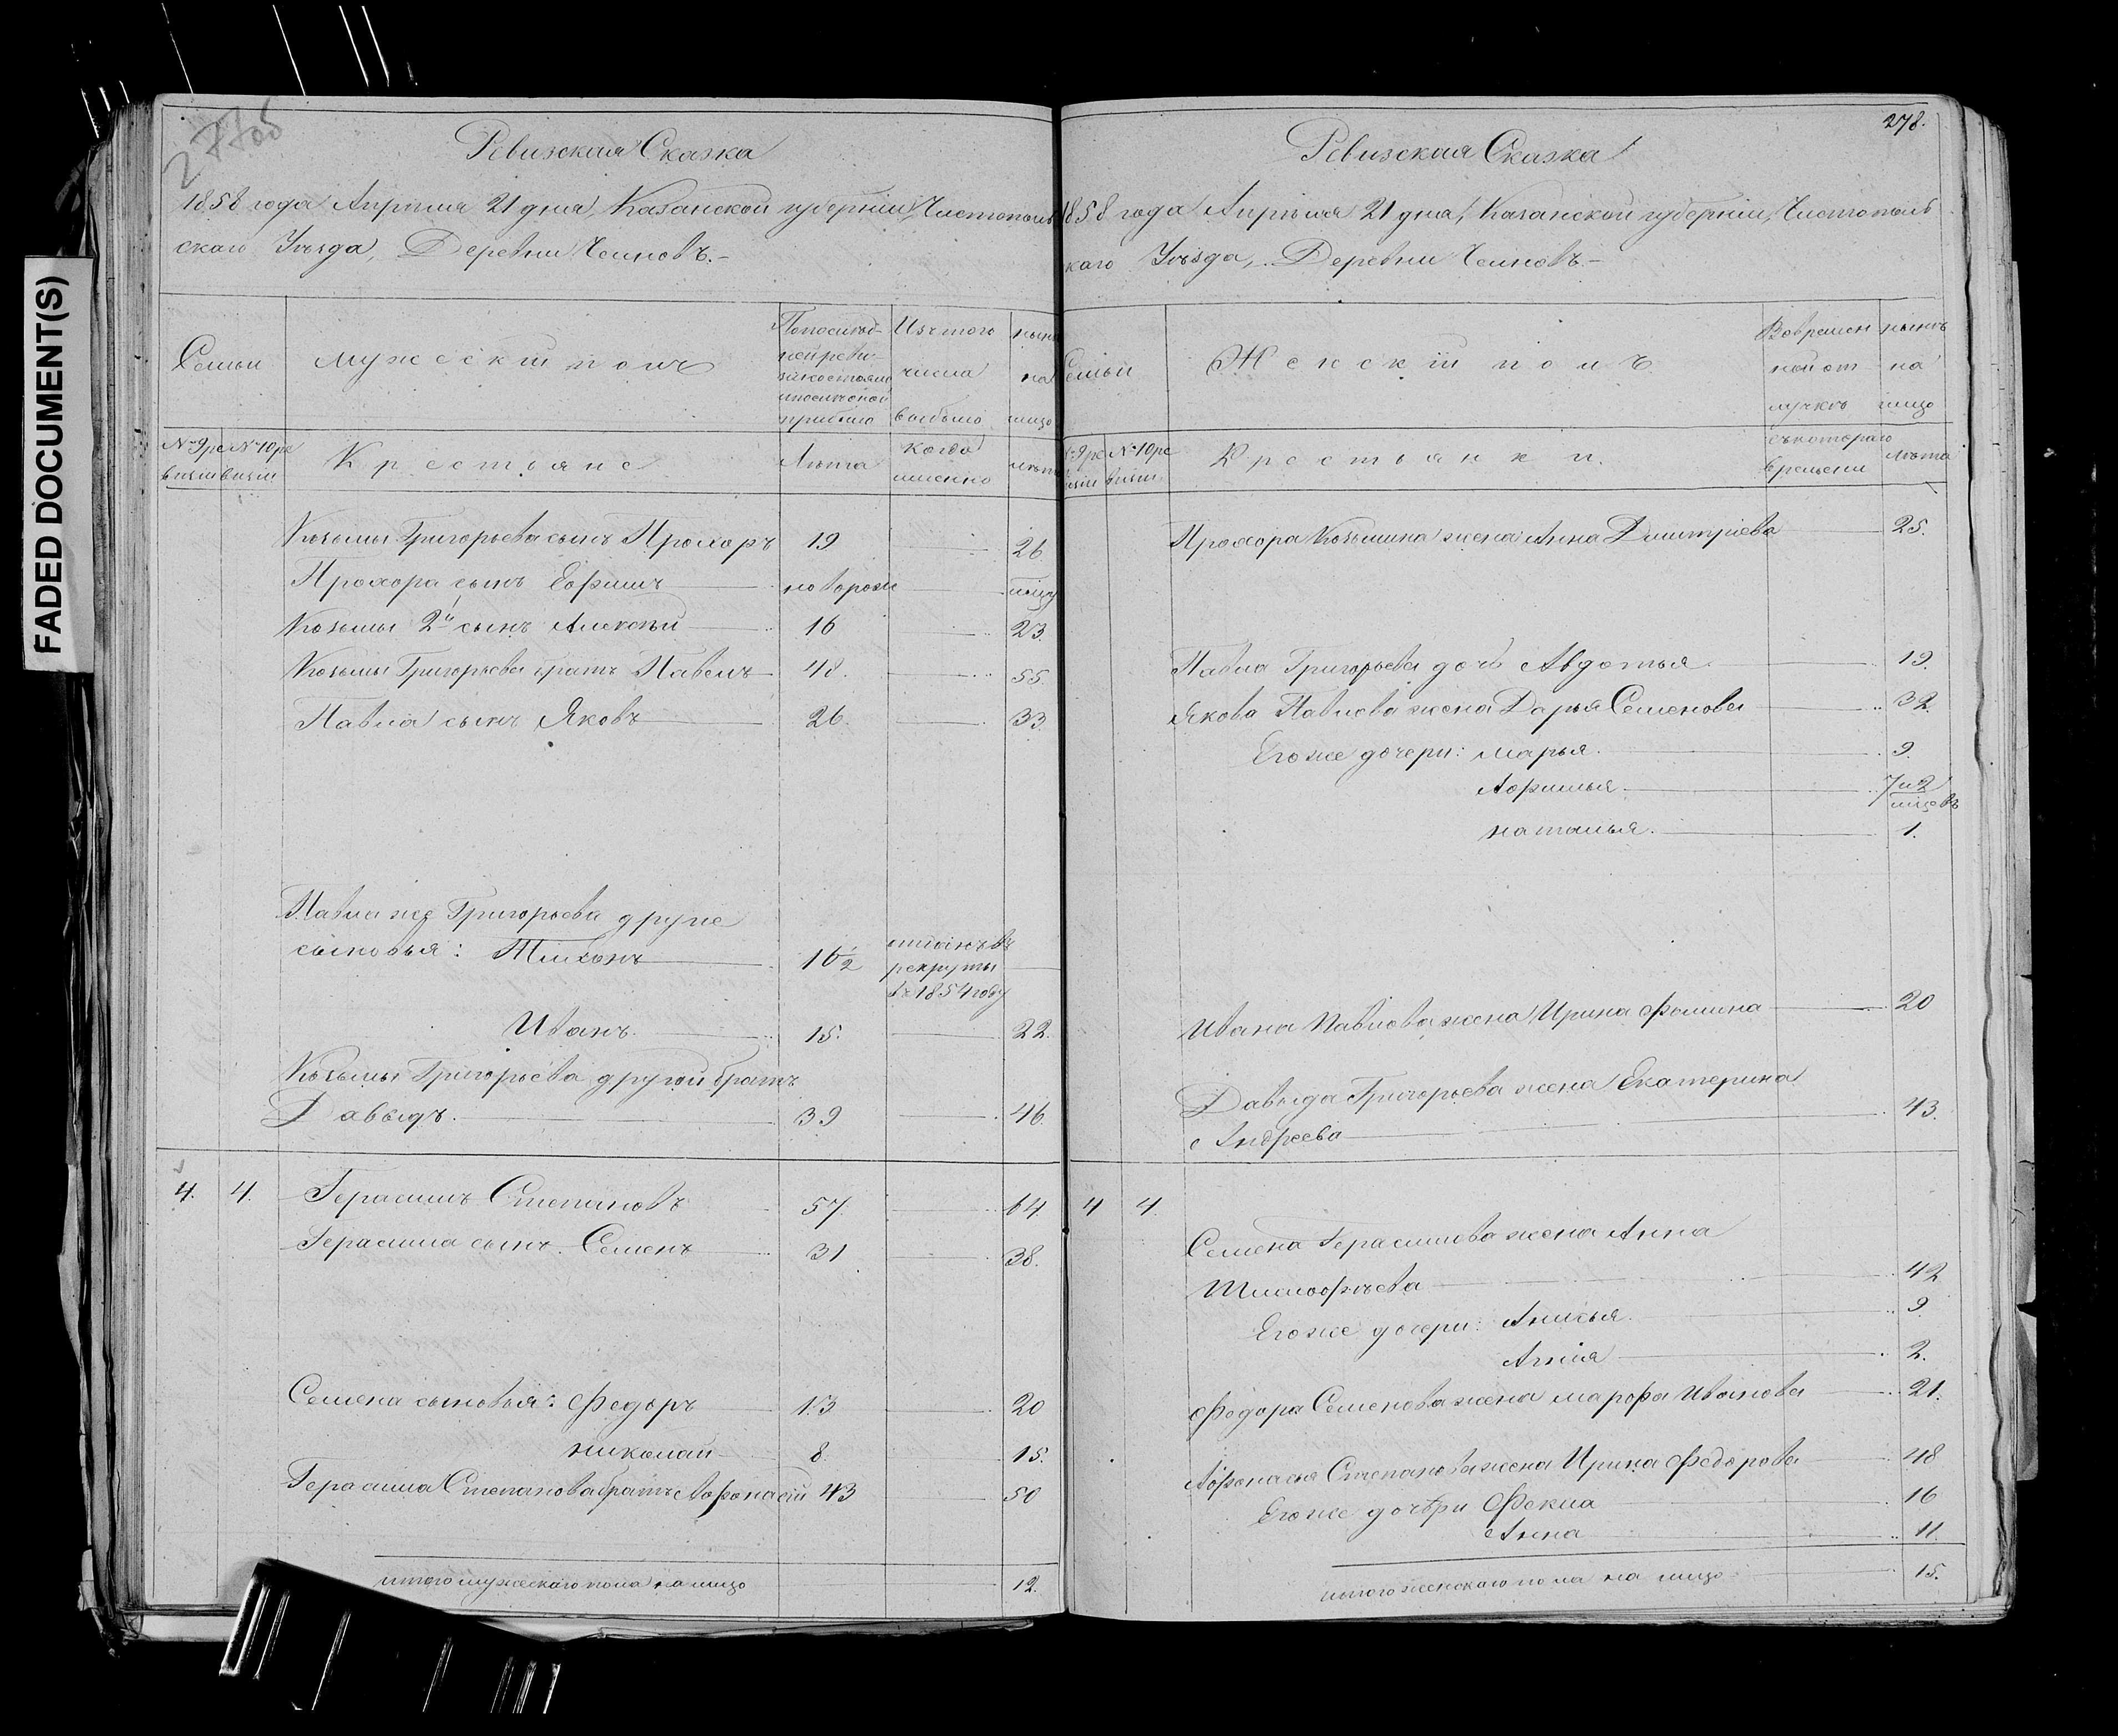 FADED DOCUMENT(S)
277об
Ревизская Сказка
1858 года Апрѣля 21 дня, Казанской губерніи, Чистополь
скаго Уѣзда, Деревни
Семьи
мужескій полъ
По послѣд-
ней реви-
зіи состояло
и послѣ оной
прибыло
Изъ того
числа
выбыло
нынѣ
на
лицо
№ 9 ре
визіи
№ 10 ре
визіи
Крестьяне
Лѣта
когда
именно
лѣта
Козьмы Григорьева сынъ Прохоръ 19 26
Прохора сынъ Ефимъ новорожд
Козьмы 2й сынъ Алексѣй 16 23.
Козьмы Григорьева братъ Павелъ 48. 55.
Павла сынъ Яковъ 26. 33.
Павла же Григорьева другіе
сыновья: Тихонъ 16½ отданъ въ
рекруты
въ 1854 году
Иванъ 15. 22.
Козьмы Григорьева другой братъ
Давыдъ. 39 46.
4. 4. Герасимъ Степановъ 57. 64.
Герасима сынъ Семенъ 31 38.
Семена сыновья: Федоръ 13 20
Николай 8. 15.
Герасима Степанова братъ Афонасій 43 50
итого мужескаго пола на лицо 12.
278.
Ревизская Сказка
1858 года Апрѣля 21 дня, Казанской губерніи, Чистополь
скаго Уѣзда, Деревни
Семьи
Женскій полъ
Во времен
ной от
лучкѣ
нынѣ
на
лицо
№ 9 ре
визіи
№ 10 ре
визіи
Крестьянки.
съ котораго
времени
Лѣта
Прохора Козьмина жена Анна Дмитріева 25.
Павла Григорьева дочь Авдотья 19.
Якова Павлова жена Дарья Семенова 32.
Его же дочери: Марья. 9.
Афимья 7 и 2
мѣсяцовъ
Наталья. 1.
Ивана Павлова жена Ирина Фомина 20
Давыда Григорьева жена Екатерина
Андреева 43.
4 4.
Семена Герасимова жена Анна
Тимофѣева 42
Его же дочери: Анисья. 9
2.
Федора Семенова жена Марфа Иванова 21.
Афонасья Степанова жена Ирина Федорова 48
Его же дочери Фекла 16
Анна 11.
итого женскаго пола на лицо 15.